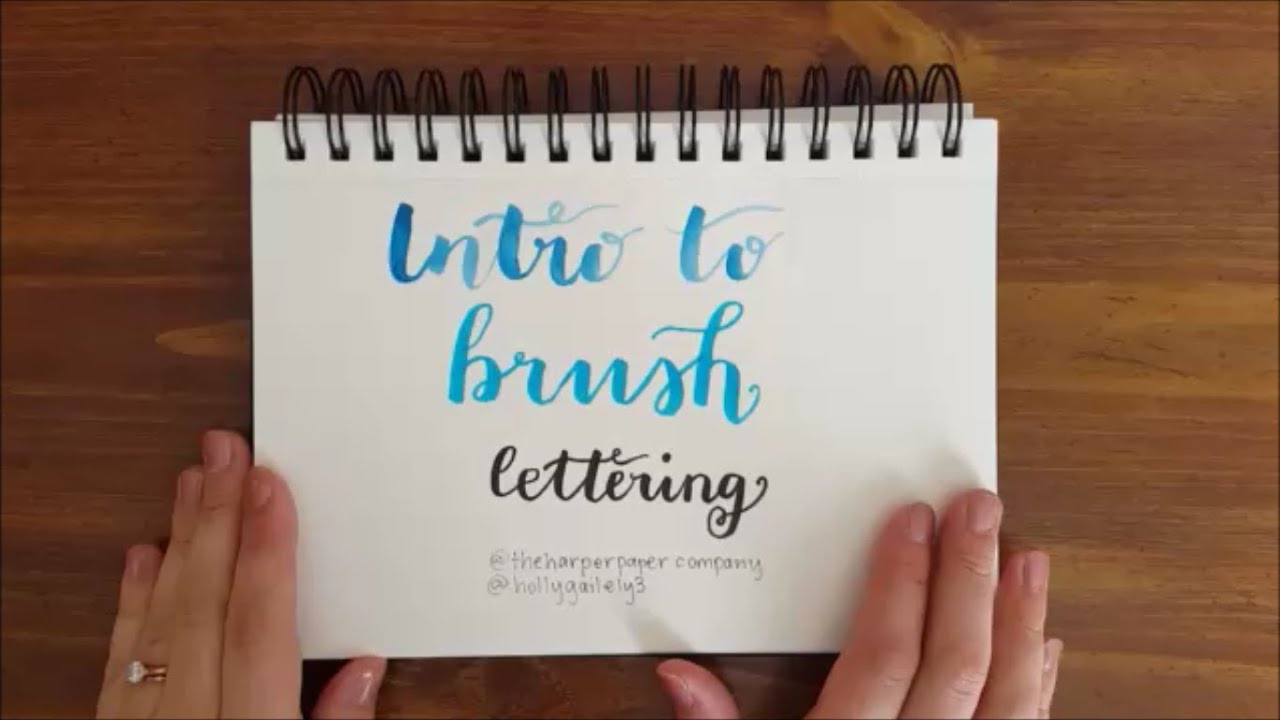 Intro to
brush
lettering
@theharperpapercompany
@hollygailely3